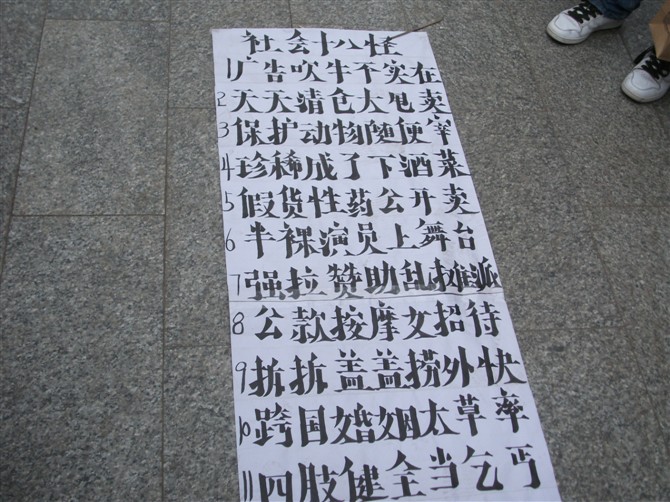 社会十八怪
1广告吹牛不实在
2天天清仓大甩卖
3保护动物随便宰
4珍稀成了下酒菜
5假货性药公开卖
6半裸演员上舞台
7强拉赞助乱摊派
8公款按摩女招待
9拆拆盖盖捞外快
10跨国婚姻太草率
11四肢健全当乞丐